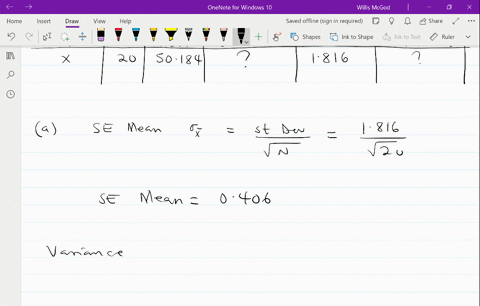 OneNote for Windows 10
Willis McGod
File Home Insert Draw View Help
Saved offline (sign in required) Share
Shapes Ink to Shape Ink to Text Ruler
X 20 50.184 ? 1.816 ?
(a) SE Mean σx̄ = st Dev / √N = 1.816 / √20
SE Mean = 0.406
Variance